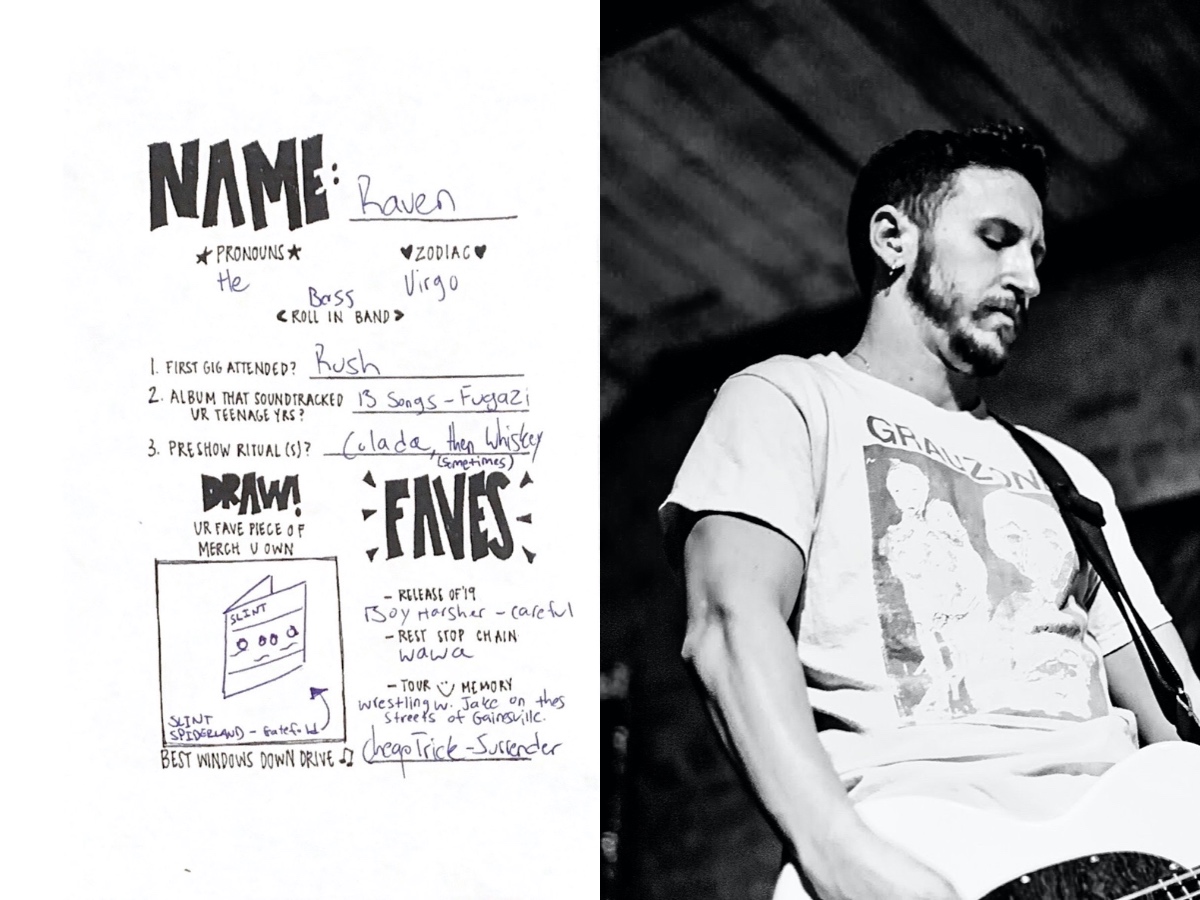 NAME: Raven
★PRONOUNS★
He
♥ZODIAC♥
Virgo
Bass
<ROLL IN BAND>
1. FIRST GIG ATTENDED? Rush
2. ALBUM THAT SOUNDTRACKED
UR TEENAGE YRS?
13 Songs - Fugazi
3. PRESHOW RITUAL(S)? Colada, then Whiskey
(sometimes)
DRAW!
UR FAVE PIECE OF
MERCH U OWN
SLINT
SLINT
SPIDERLAND - Gatefold
FAVES
- RELEASE OF '19
Boy Harsher - careful
- REST STOP CHAIN
wawa
- TOUR MEMORY
wrestling w. Jake on thes
streets of Gainesville.
BEST WINDOWS DOWN DRIVE ♫ CheapTrick - Surrender
GRAUZONE